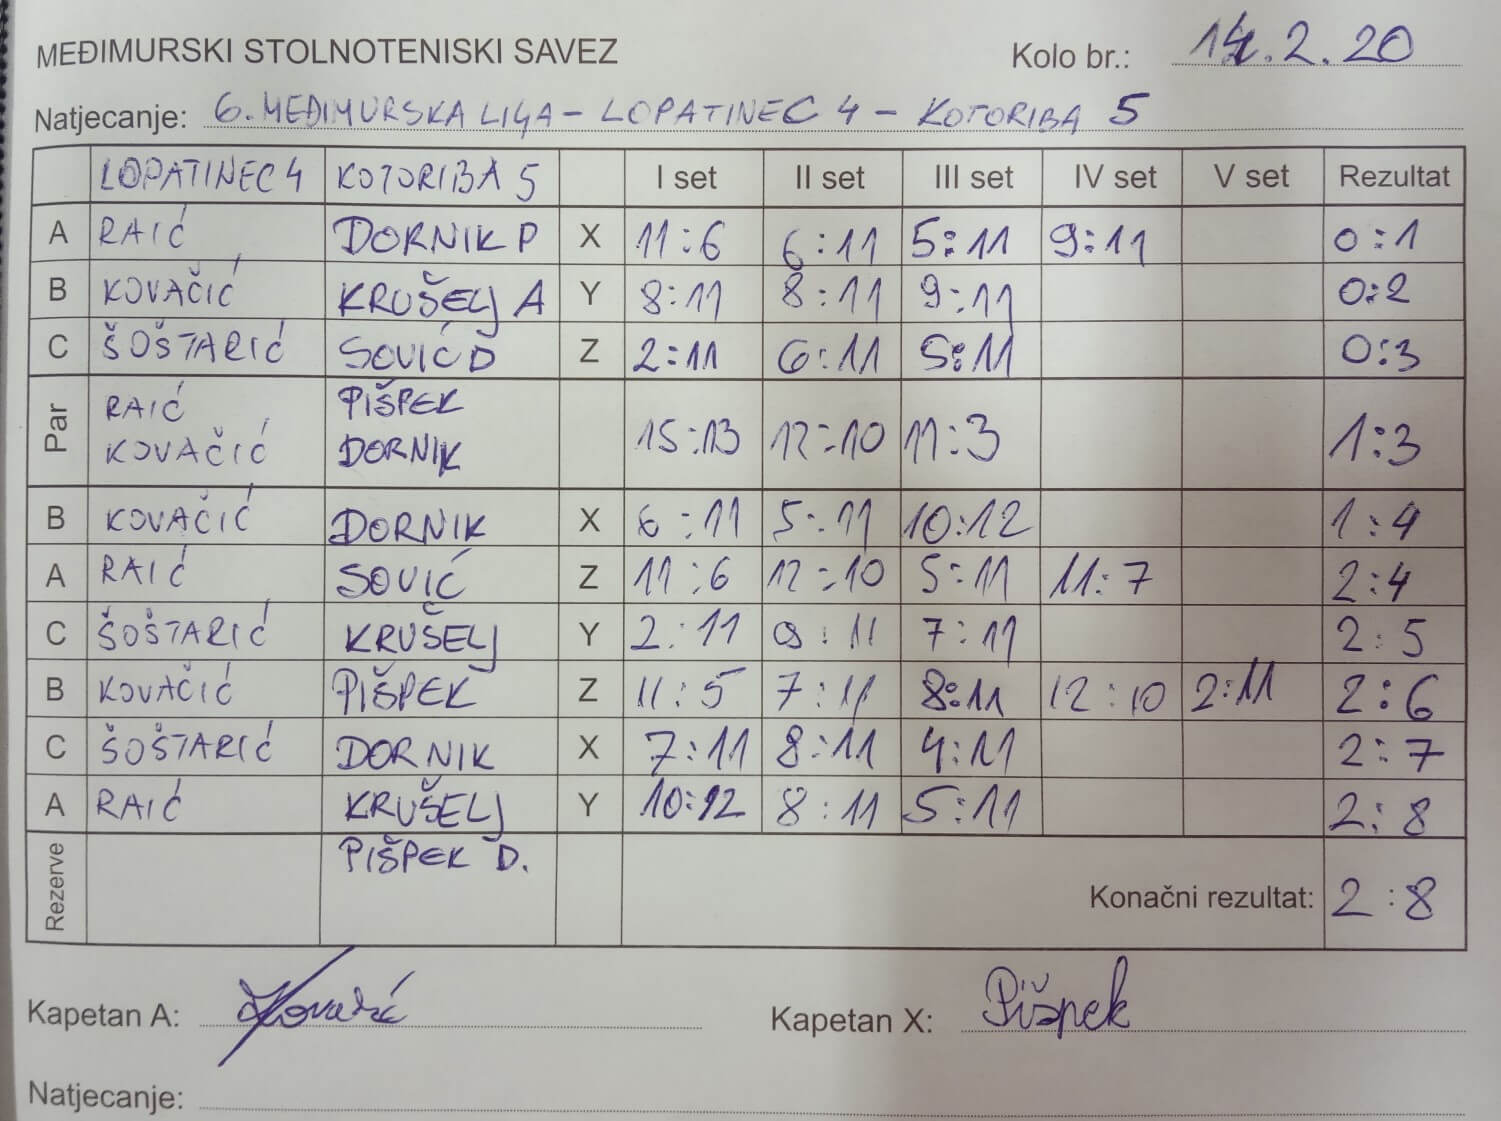 MEĐIMURSKI STOLNOTENISKI SAVEZ Kolo br.: 14.2.20
Natjecanje: 6. MEĐIMURSKA LIGA - LOPATINEC 4 - KOTORIBA 5
LOPATINEC 4 KOTORIBA 5 I set II set III set IV set V set Rezultat
A RAIĆ DORNIK P X 11:6 6:11 5:11 9:11 0:1
B KOVAČIĆ KRUŠELJ A Y 8:11 8:11 9:11 0:2
C ŠOŠTARIĆ SOVIĆ D Z 2:11 6:11 5:11 0:3
Par RAIĆ KOVAČIĆ PIŠPEK DORNIK 15:13 12:10 11:3 1:3
B KOVAČIĆ DORNIK X 6:11 5:11 10:12 1:4
A RAIĆ SOVIĆ Z 11:6 12:10 5:11 11:7 2:4
C ŠOŠTARIĆ KRUŠELJ Y 2:11 9:11 7:11 2:5
B KOVAČIĆ PIŠPEK Z 11:5 7:11 8:11 12:10 2:11 2:6
C ŠOŠTARIĆ DORNIK X 7:11 8:11 4:11 2:7
A RAIĆ KRUŠELJ Y 10:12 8:11 5:11 2:8
Rezerve PIŠPEK D. Konačni rezultat: 2:8
Kapetan A: Kovačić Kapetan X: Pišpek
Natjecanje: